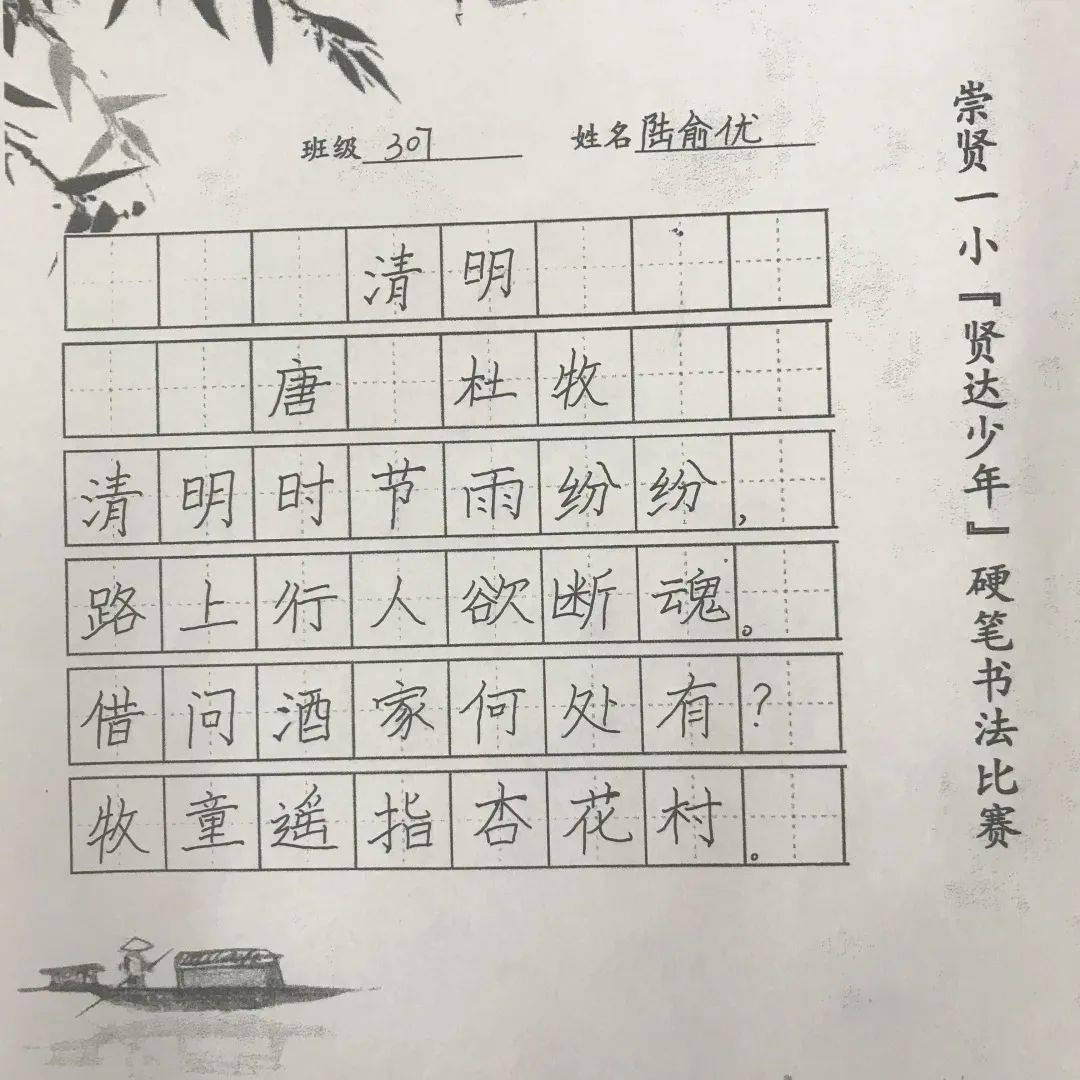 班级 307 姓名 陆俞优
清明
唐 杜牧
清明时节雨纷纷，
路上行人欲断魂。
借问酒家何处有？
牧童遥指杏花村。
崇贤一小『贤达少年』硬笔书法比赛